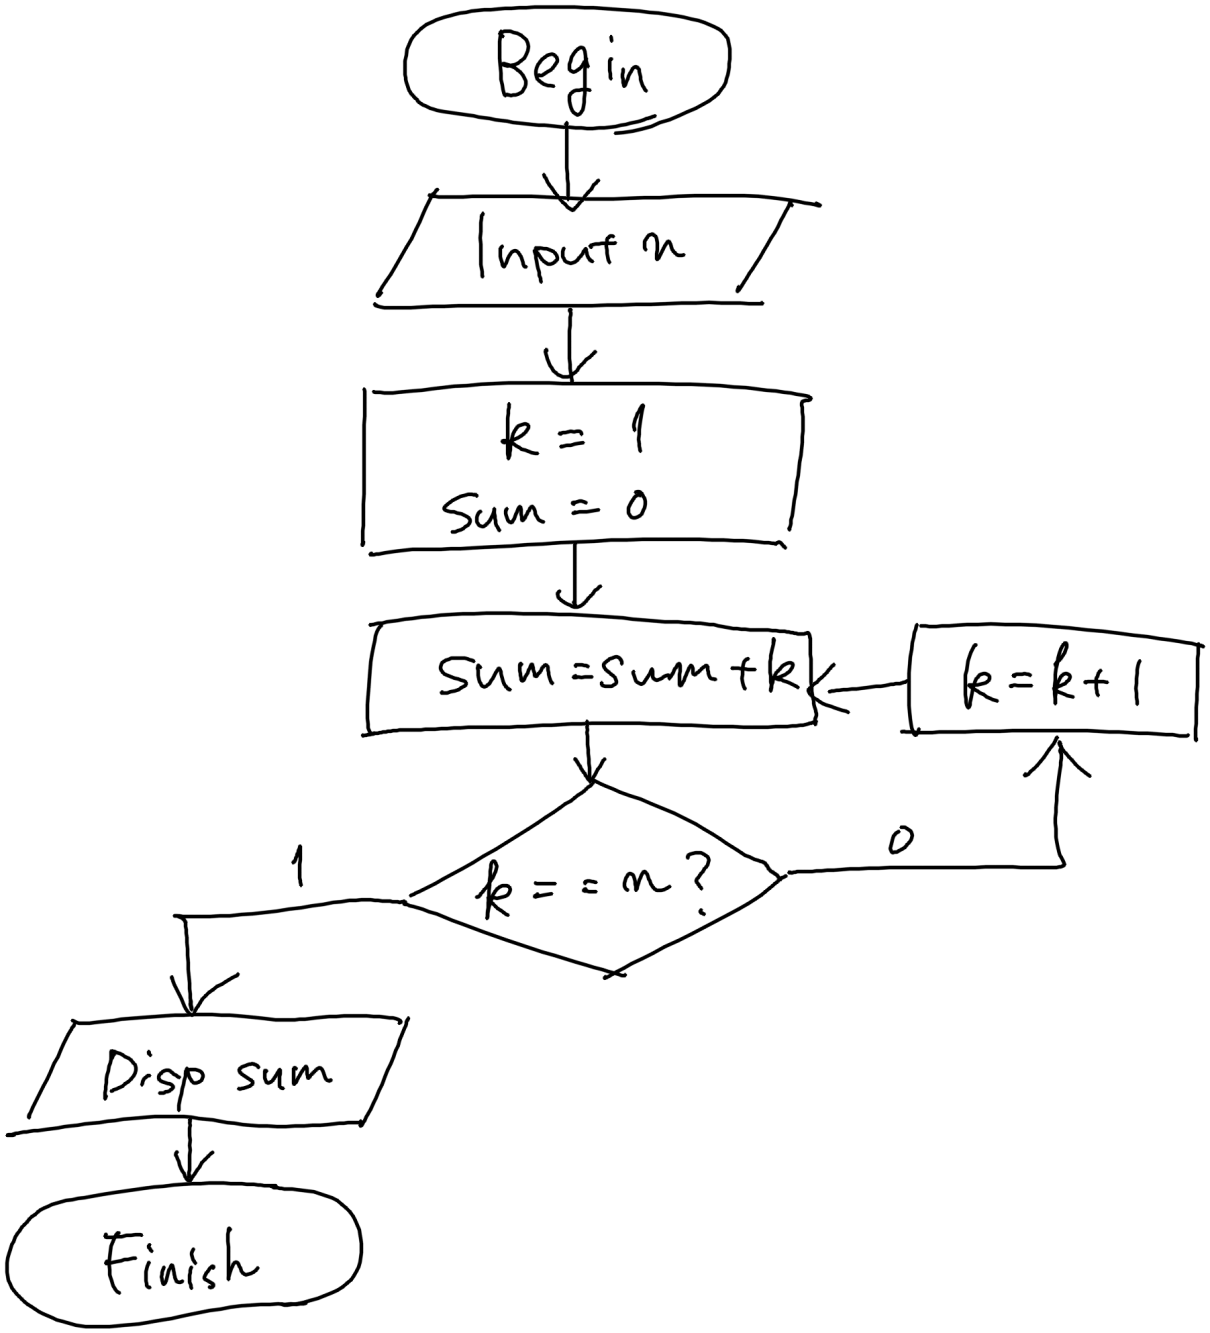 Begin
Input n
k = 1
Sum = 0
Sum = sum + k
k = k + 1
k = = n ?
1
0
Disp sum
Finish